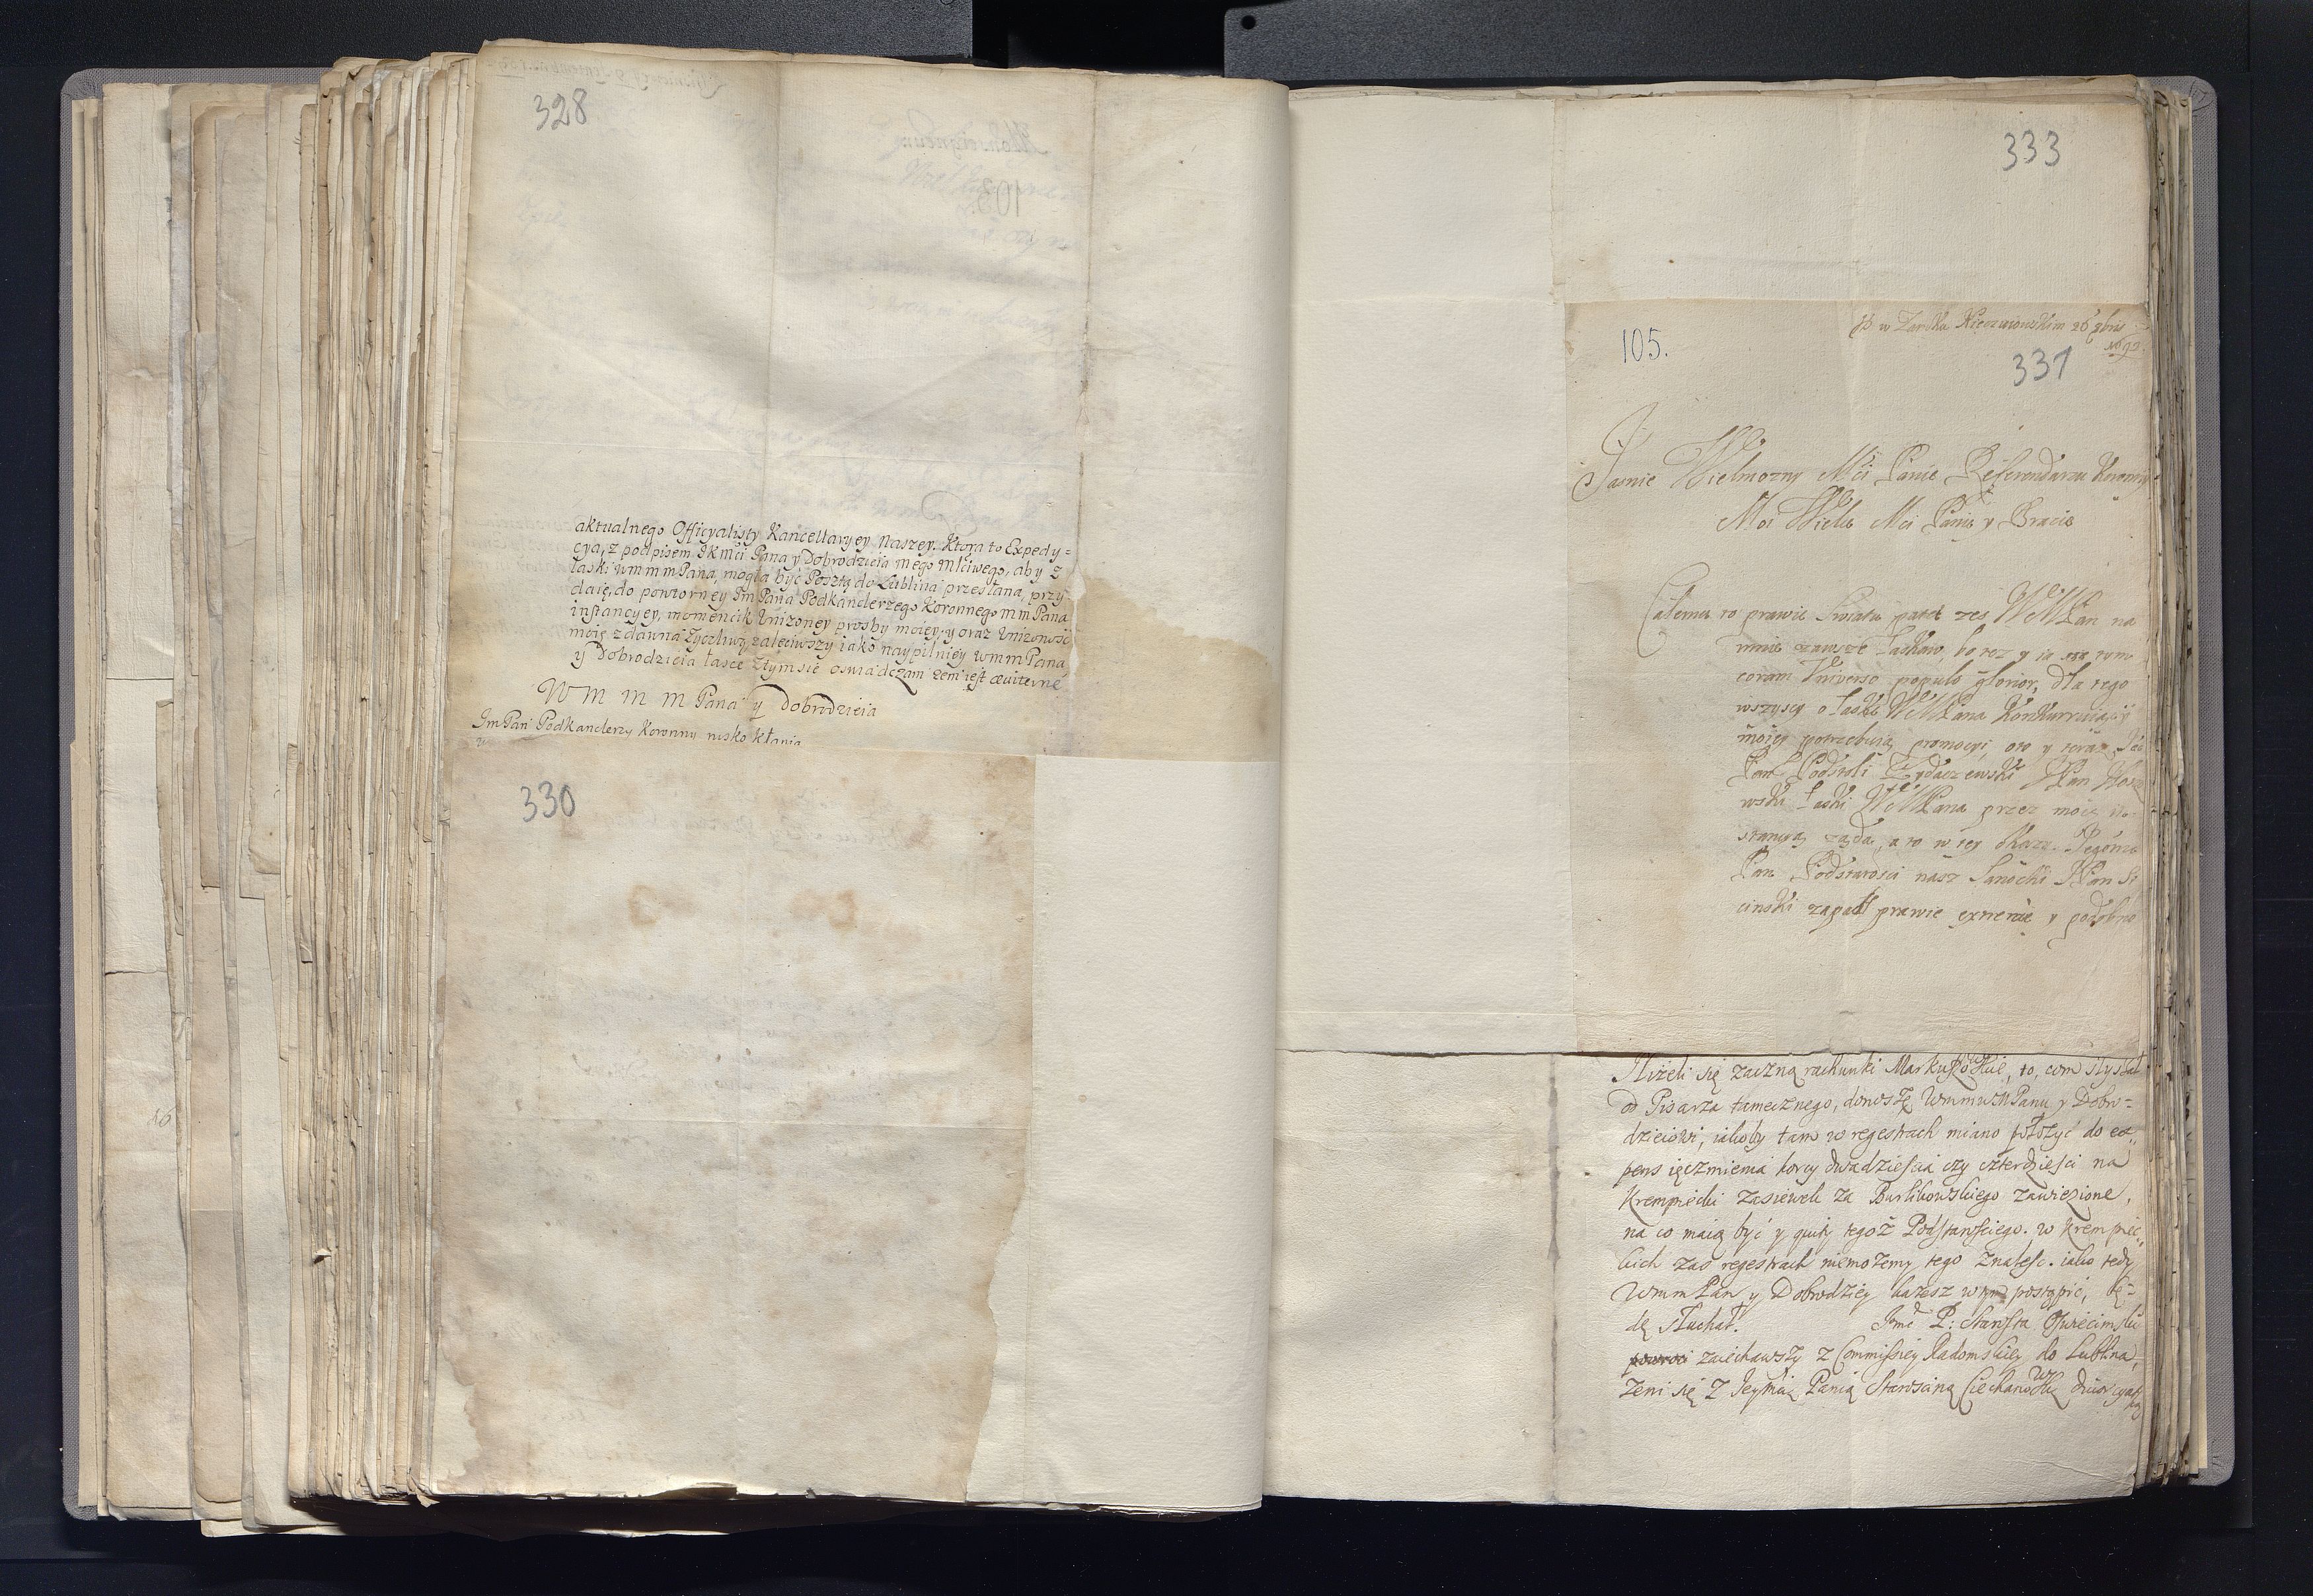 328
aktualnego Officyalisty Kancellaryey Naszey. Ktora to Expedy=
cya, z podpisem JKMci Pana y Dobrodzieia mego Mciwego, aby z
łaski wmmmPana, mogła być Pocztą do Lublina przesłana, przy
daię, do powtorney Jm Pana Podkanclerzego Koronnego mm Pana
instancyey, momencik Unizoney prosby moiey, y oraz Unizoność
moię zdawna Zyczliwą, zaleciwszy iako naypilniey wmmPana
y Dobrodzieia łasce Ztym sie oswiadczam zem iest æviterne
W M M M Pana y Dobrodzieia
Jm Pan Podkanclerzy Koronny nisko kłania
330
333
w Zamku 26
169
105.
331
Jasnie Wielmozny Mći Panie Referendarzu Koronny
Moi Wielce Mci Panie y Bracie
Całemu to prawie Swiatu patet zes WMMPan na
mnie zawsze Łaskaw, bo tez y ia tym
coram Universo populo glorior, dla tego
wszyscy o łaskę WMMPana Konkurruiący
moiey potrzebuią promocyi, oto y teraz Jeo
Pan Podstoli Zydaczewski JPan
wski łaski WMMPana przez moię in
stancyą ząda, a to w tey Okazy. Regens
Pan Podstarosci nasz Sanocki JPan Si
cinski zapadł prawie y podobno
Nizeli się zaczną rachunki Markuszowskie, to, com słyszał
od Pisarza tamecznego, donoszę WmmwMPanu y Dobro=
dzieiowi, iakoby tam w regestrach miano położyć do ex„
pens ięczmienia korcy dwadzieścia czy czterdzieści na
Krempiecki zasiewek za Burlikowskiego zawiezione,
na co maią być y quity tegoż Podstarosciego. w Krempiec„
kich zas regestrach niemożemy tego znaleść. iako tedy
WmmPan y Dobrodziey każesz w tym postąpić, bę=
dę słuchał. Jmć P: Starosta Oświecimski
powroci zaiechawszy z Commissiey Radomskiey do Lublina,
żeni się z Jeymcią Panią Starościną Ciechanowską